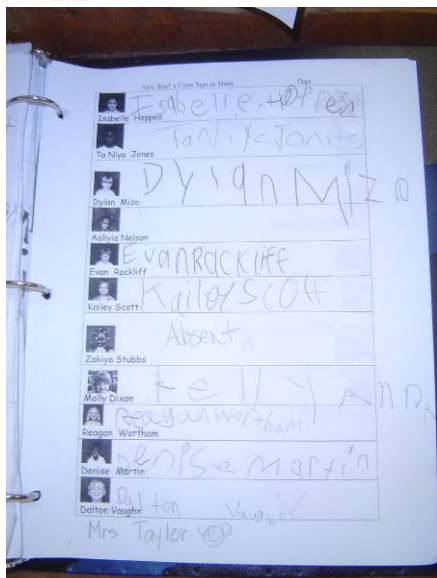 Mrs. Rayl's Class Sign in Sheet Date
Isabelle Hoppes
Isabelle Hoppes
TaNiya Jones
Ta Niya Jones
Dylan Mizo
Dylan Mizo
Aaliyia Nelson
Evan Rackliff
Evan Rackliff
Kailey Scott
Kailey Scott
Absent
Zakiya Stubbs
Kelly Ann
Molly Dixon
Reagan Wortham
Reagan Wortham
Denise Martin
Denise Martin
Dalton Vaughn
Dalton Vaughn
Mrs. Taylor